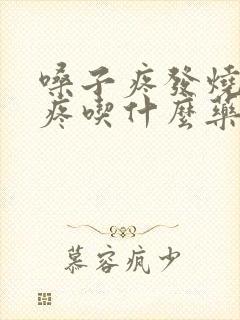 嗓子疼發燒
疼喫什麼藥
慕容疯少